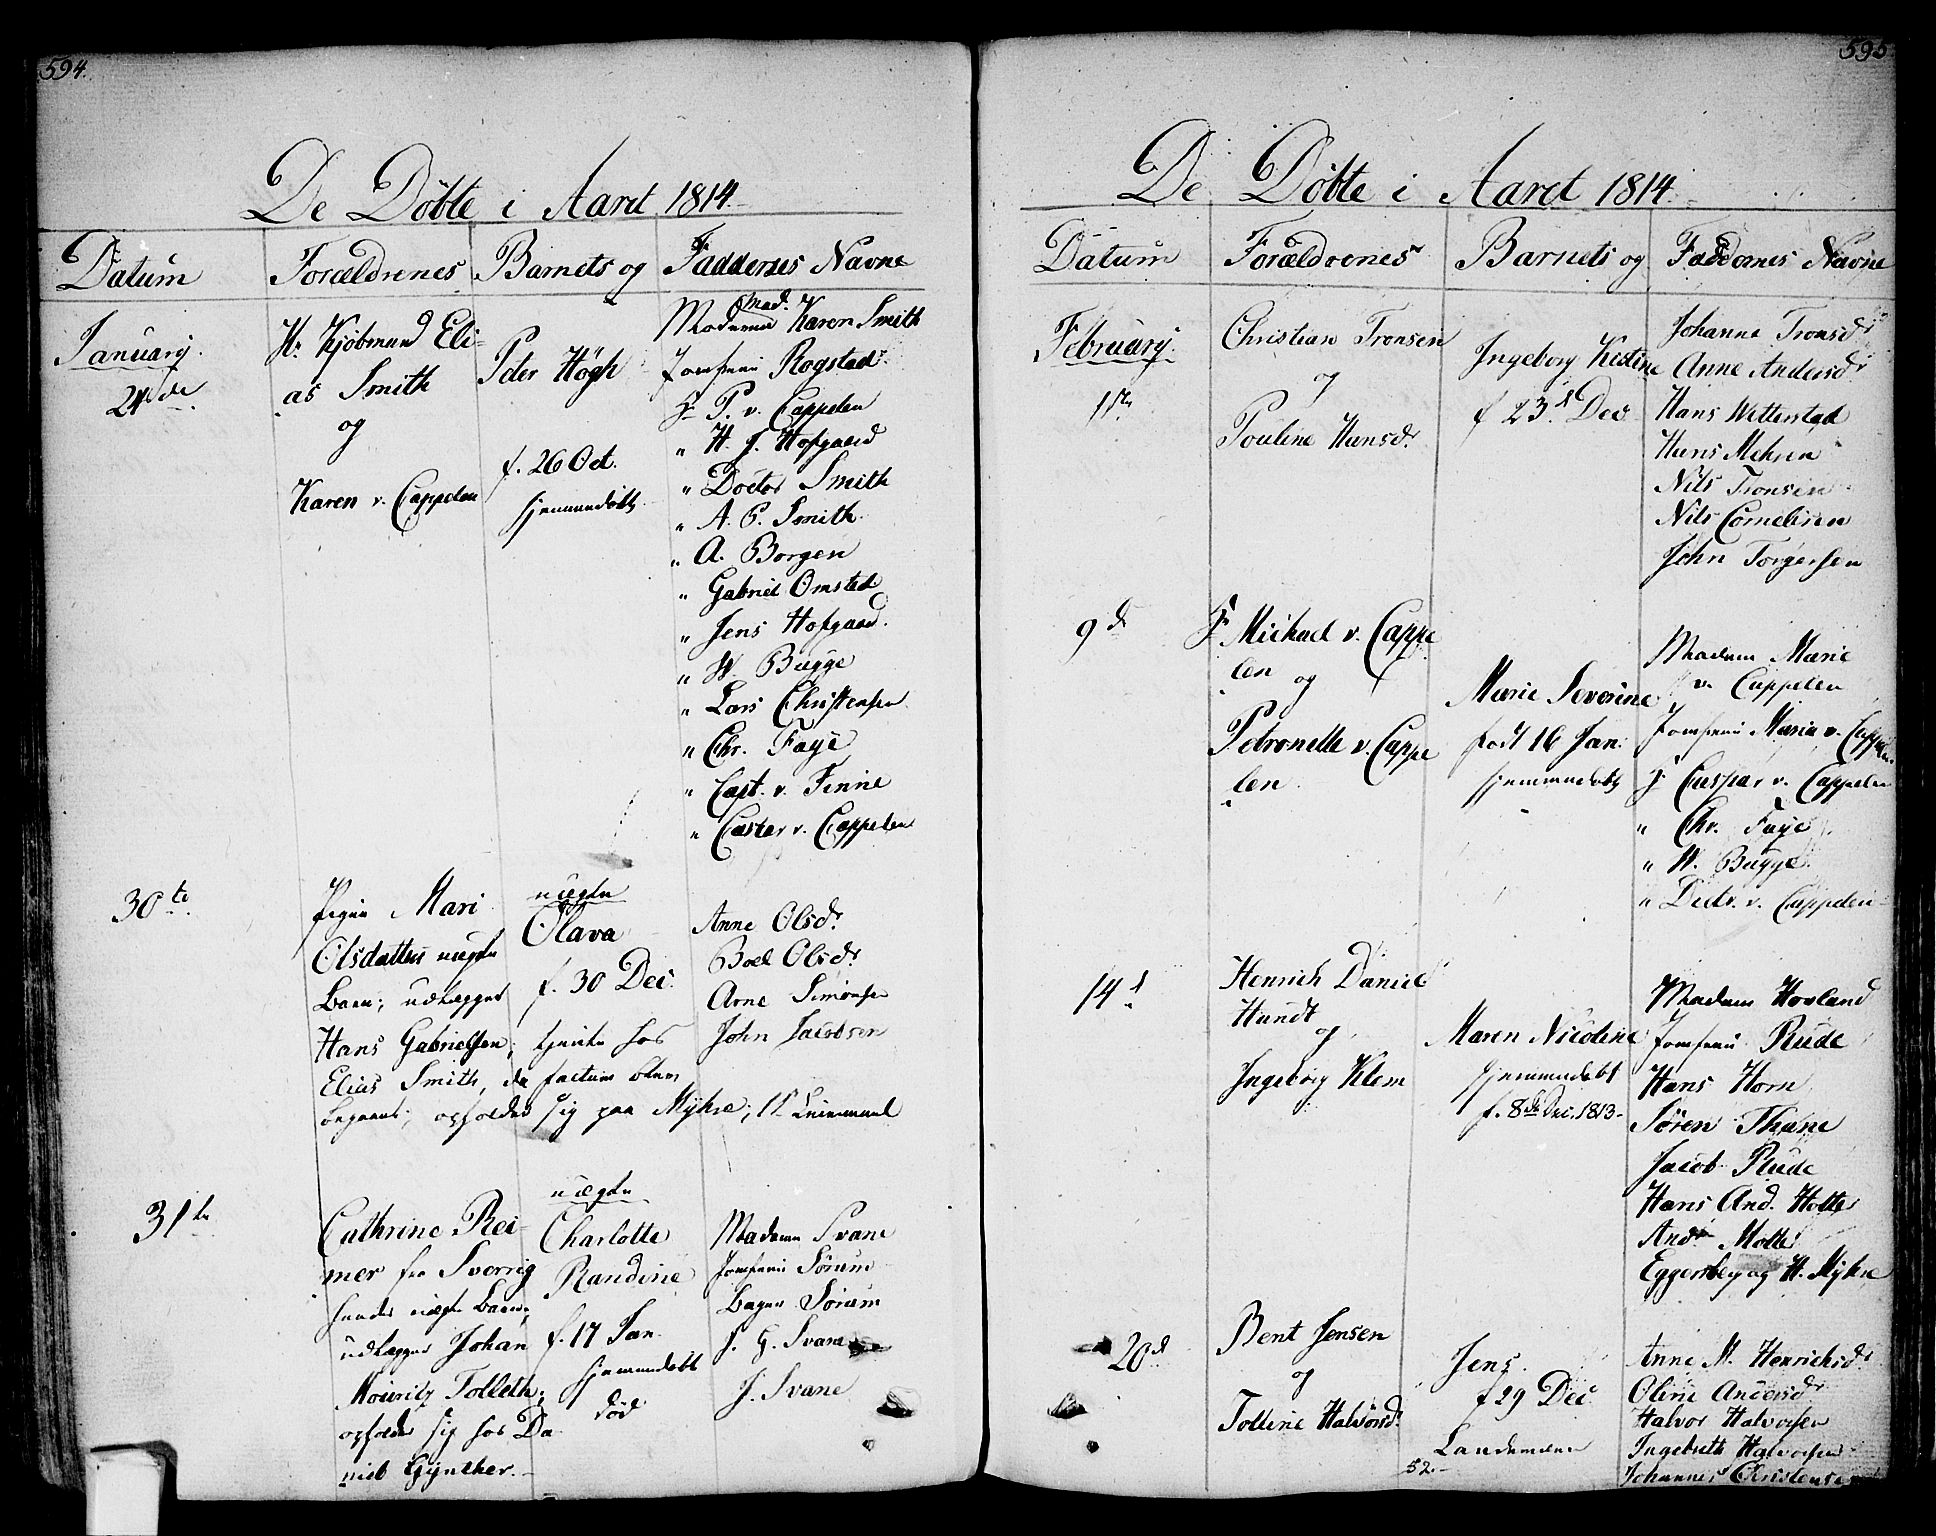 594.
De Döbte i Aaret 1814.
Datum Forældrenes Barnets og Faddernes Navne
January.
24de
Hr Kjöbmand Eli-
as Smith
og
Karen v. Cappelen
Peter Högh
f. 26 Oct.
hjemmedöbt
Mad.
Madame Karen Smith
Jomfrue Rogstad
Hr P. v. Cappelen
" H. J. Hofgaard
" Doctor Smith
" A. P. Smith
" A. Borgen
" Gabriel Omsted
" Jens Hofgaard.
" W. Bugge
" Lars Christensen
" Chr. Faye
" Capt. v. Finne
" Caster v. Cappelen
30te
Pigen Mari
Olsdatters uægte
Barn; udlægger
Hans Gabrielsen; tjente hos
Elias Smith, da factum blev
begaaet; opholder sig paa Myhre; 1ste Leiermaal
uægte
Olava
f. 30 Dec.
Anne Olsdr
Boel Olsdr
Arne Simonsen
John Jacobsen
31te
Cathrine Rei-
mer fra Sverrig
hendes uægte Barn;
udlægger Johan
Mouritz Tolleth;
opholder sig hos Da
niel Gynther.
uægte
Charlotte
Randine
f. 17 Jan.
hjemmedöbt
död
Madame Svane
Jomfrue Sörum
Bager Sörum
J. G. Svane
J. Svane
595
De Döbte i Aaret 1814
Datum Forældrenes Barnets og Faddernes Navne
February.
1ste
Christian Tronsen
og
Pouline Hansdr
Ingeborg Kistine
f 23d Dec
Johanne Tronsdr
Anne Andersdr
Hans Wetterstad
Hans Mehren
Nils Tronsen
Nils Cornelisen
John Torgersen
9de
Hr Michael v. Cappe
len og
Petronelle v. Cappe
len
Marie Severine
född 16 Jan.
hjemmedöbt
Madam Marie
v. Cappelen
Jomfrue Maria v. Cappelen
Hr Caspar v. Cappelen
" Chr. Faye
" W. Bugge
" Didr. v. Cappelen
14d
Henrich Daniel
Hundt
og
Ingeborg Klem
Maren Nicoline
hjemmedöbt
f. 8de Dec. 1813
Madam Hovland
Jomfrue Rude
Hans Horn
Sören Thane
Jacob Rude
Hans And. Holter
Andr Molte
Eggersberg og H. Myhre
20d
Bent Jensen
og
Tolline Halvorsdr
Jens.
f 29 Dec
Landemænd
52.
Anne M. Henrichsdr
Oline Andersdr
Halvor Halvorsen
Ingebreth Halvorsen
Johannes Christensen